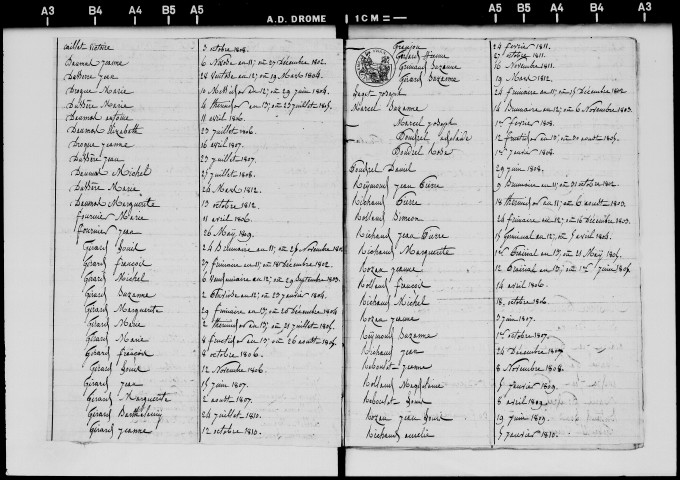 A3 B4 A4 B5 A5 A.D. DROME 1 CM = A5 B5 A4 B4 A3
caillet Victoire 3 octobre 1808.
Daumas jeanne 6 Nivose an 11; ou 27 décembre 1802.
Dassère jean 28 Ventose an 12; ou 19 Mars 1804.
Drogue Marie 10 Messidor an 12; ou 29 juin 1804.
Dassère Marie 4 thermidor an 13; ou 23 juillet 1805.
Daumas antoine 11 avril 1806.
Daumas Elizabeth 23 juillet 1806.
Drogue jeanne 16 avril 1807.
Dassère jean 23 juillet 1807.
Daumas Michel 25 juillet 1808.
Dassère Marie 26 Mars 1812.
Daumas Marguerite 13 octobre 1812.
fournier Marie 11 avril 1806.
fournier jean 26 May 1809.
Girard Louis 24 Brumaire an 11; ou 25 Novembre
Girard françois 27 frimaire an 11; ou 18 décembre 1802.
Girard Michel 6 Vendemiaire an 12; ou 29 Septembre 1803.
Girard Suzanne 2 ou 23 janvier 1804.
Girard Marguerite 29 frimaire an 13; ou 20 décembre 1804
Girard Marie 2 thermidor an 13; ou 21 juillet 1805.
Girard Marie 8 fructidor an 13; ou 26 aoust 1805.
Girard françois 8 octobre 1806.
Girard Louis 12 Novembre 1806.
Girard jean 15 juin 1807.
Girard Marguerite 2 aoust 1807.
Girard Barthélemy 24 juillet 1810.
Girard jeanne 12 octobre 1810.
24 fevrier 1811.
Girard 27 octobre 1811.
Suzanne 16 Novembre 1811.
Girard Suzanne 19 Mars 1812.
joseph 24 frimaire an 11; ou 15 décembre 1802.
Marcel Suzanne 14 Brumaire an 12; ou 6 Novembre 1803.
Marcel joseph 1er fevrier 1808.
adelaide 12 fructidor an 13; ou 30 aoust 1805.
Rose 1er janvier 1808.
Daniel 29 juin 1808.
Reymond jean Pierre 9 Brumaire an 11; ou 31 octobre 1802.
Richaud Pierre 18 thermidor an 11; ou 6 aoust 1803.
Rolland Simeon 24 frimaire an 12; ou 16 décembre 1803.
Richaud jean Pierre 15 Germinal an 12; ou 5 avril 1804.
Richaud Marguerite 1er Prairial an 13; ou 21 May 1805.
Rozan jeanne 12 Prairial an 13; ou 1er juin 1805.
Rolland françois 14 avril 1806.
Richaud Michel 18 octobre 1806.
Rozan jeanne 3 juin 1807.
Reymond Suzanne 1er octobre 1807.
Richaud jean 24 décembre 1807
Reboulet jeanne 8 Novembre 1808.
Rolland Magdeleine 5 janvier 1809.
Reboulet Louis 8 avril 1809.
Rozan jean Louis 19 juin 1809.
Richaud aurelie 5 janvier 1810.